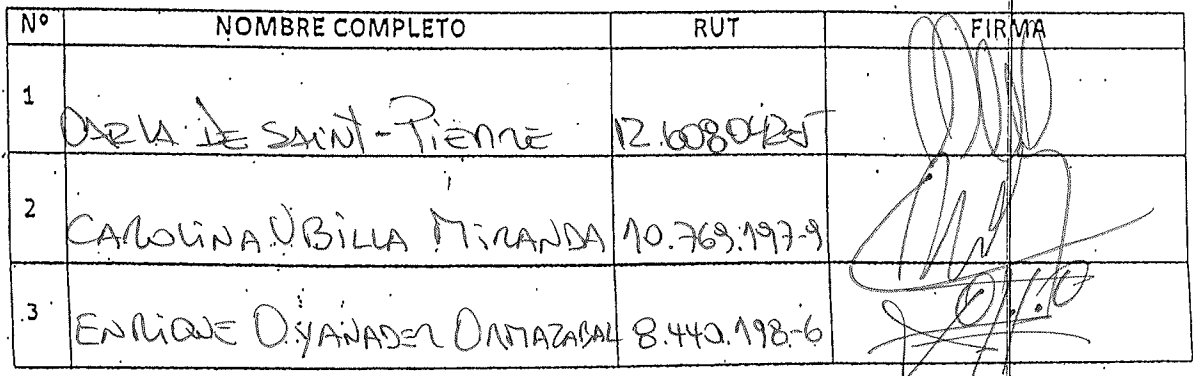 Nº NOMBRE COMPLETO RUT FIRMA
1 CARLA DE SAINT-PIERRE 12.608.042-5
2 CAROLINA UBILLA MIRANDA 10.769.197-9
3 ENRIQUE OYANADER ORMAZABAL 8.440.198-6